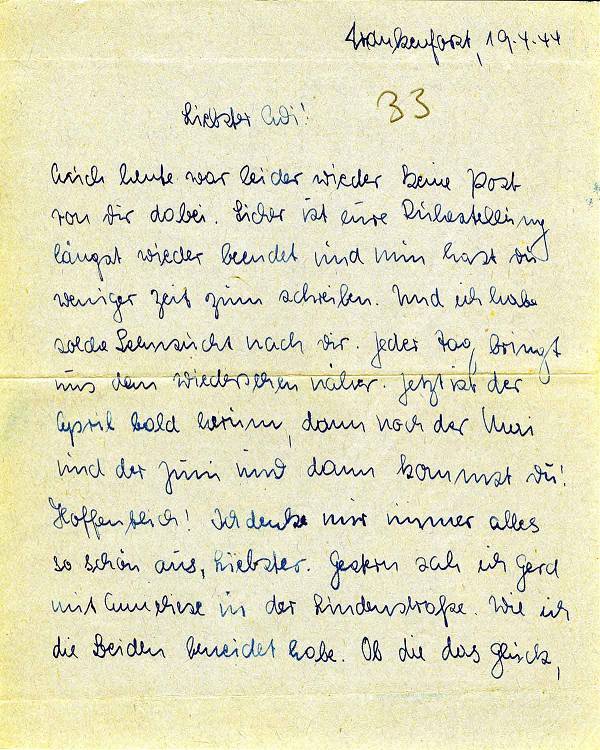 Frankenforst, 19.4.44
Liebster Adi!
33
Auch heute war leider wieder keine Post
von dir dabei. Sicher ist eure Ruhestellung
längst wieder beendet und nun hast du
weniger Zeit zum schreiben. Und ich habe
solche Sehnsucht nach dir. Jeder Tag bringt
uns dem wiedersehen näher. Jetzt ist der
April bald herum, dann noch der Mai
und der Juni und dann kommst du!
Hoffentlich! Ich denke mir immer alles
so schön aus, Liebster. Gestern sah ich Gerd
mit Anneliese in der Lindenstraße. Wie ich
die Beiden beneidet habe. Ob die das Glück,